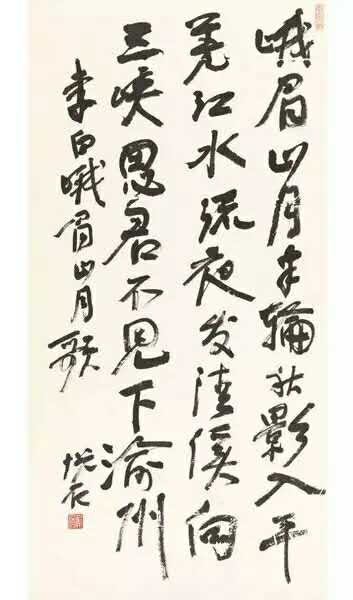 峨眉山月半輪秋影入平
羌江水流夜发清溪向
三峡思君不见下渝州
李白峨眉山月歌